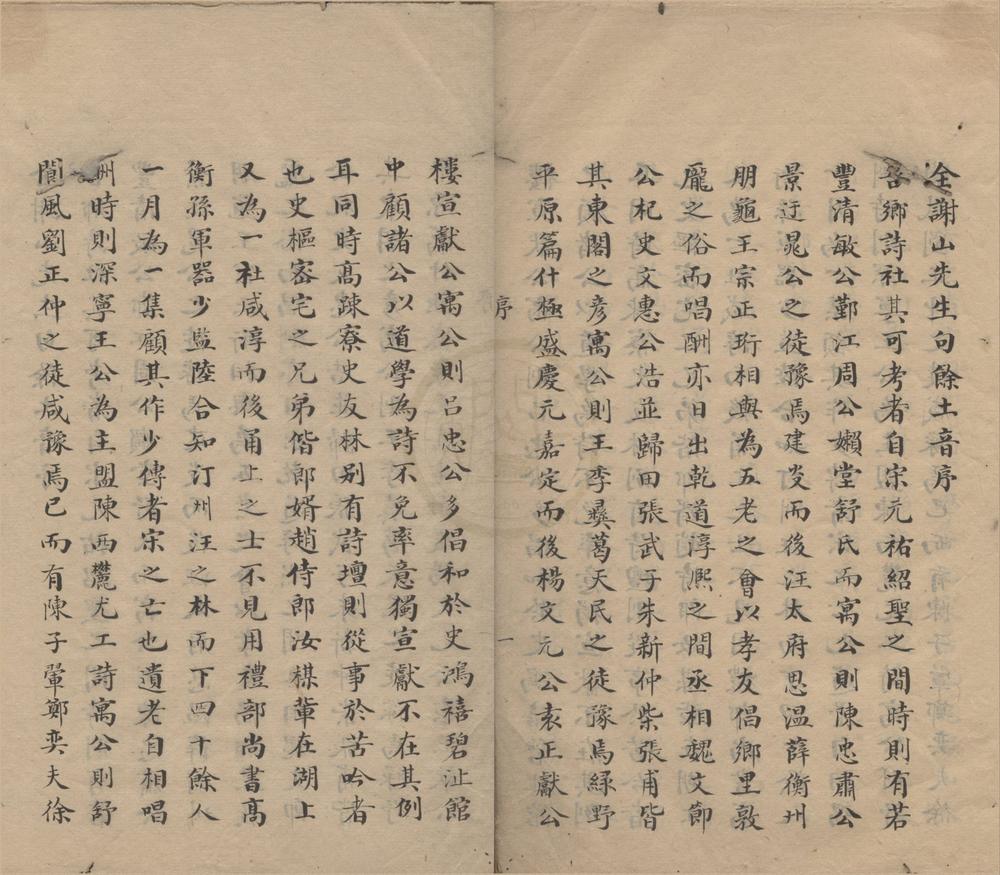 全謝山先生句餘土音序
吾鄉詩社其可考者自宋元祐紹聖之間時則有若
豐清敏公鄞江周公嬾堂舒氏而寓公則陳忠肅公
景迂晁公之徒豫焉建炎而後汪太府思温薛衡州
朋龜王宗正珩相與為五老之會以孝友倡鄉里敦
龐之俗而唱酬亦日出乾道淳熈之間丞相魏文節
公杞史文惠公浩並歸田張武子朱新仲柴張甫皆
其東閣之彦寓公則王季彞葛天民之徒豫焉緑野
平原篇什極盛慶元嘉定而後楊文元公袁正獻公
序
一
樓宣獻公寓公則呂忠公多倡和於史鴻禧碧沚館
中顧諸公以道學為詩不免率意獨宣獻不在其例
耳同時髙疎寮史友林别有詩壇則從事於苦吟者
也史樞宻宅之兄弟偕郎婿趙侍郎汝楳輩在湖上
又為一社咸淳而後甬上之士不見用禮部尚書髙
衡孫軍器少監陸合知汀州汪之林而下四十餘人
一月為一集顧其作少傳者宋之亡也遺老自相唱
州時則深寧王公為主盟陳西麓尤工詩寓公則舒
閬風劉正仲之徒咸豫焉已而有陳子翬鄭奕夫徐